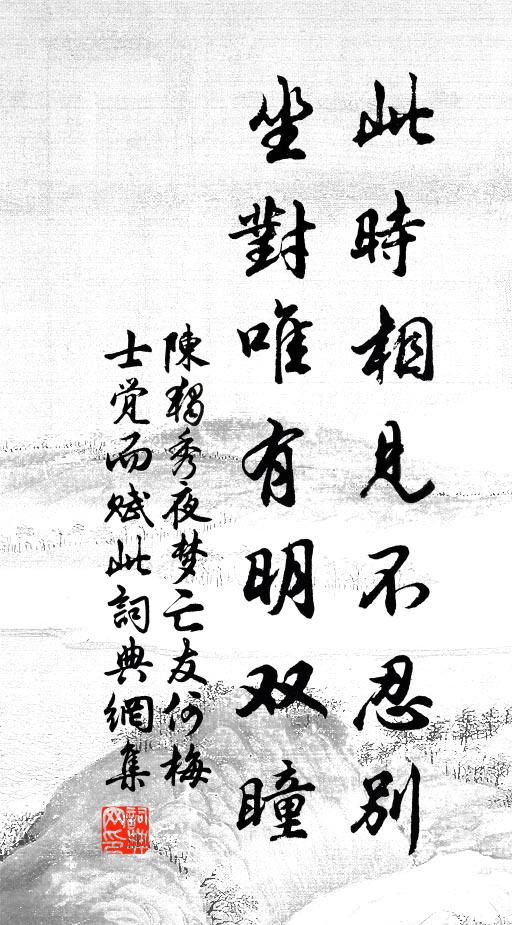 此時相見不忍别
坐對唯有明双瞳
陳独秀夜梦亡友何梅
士觉而赋此詞典網集